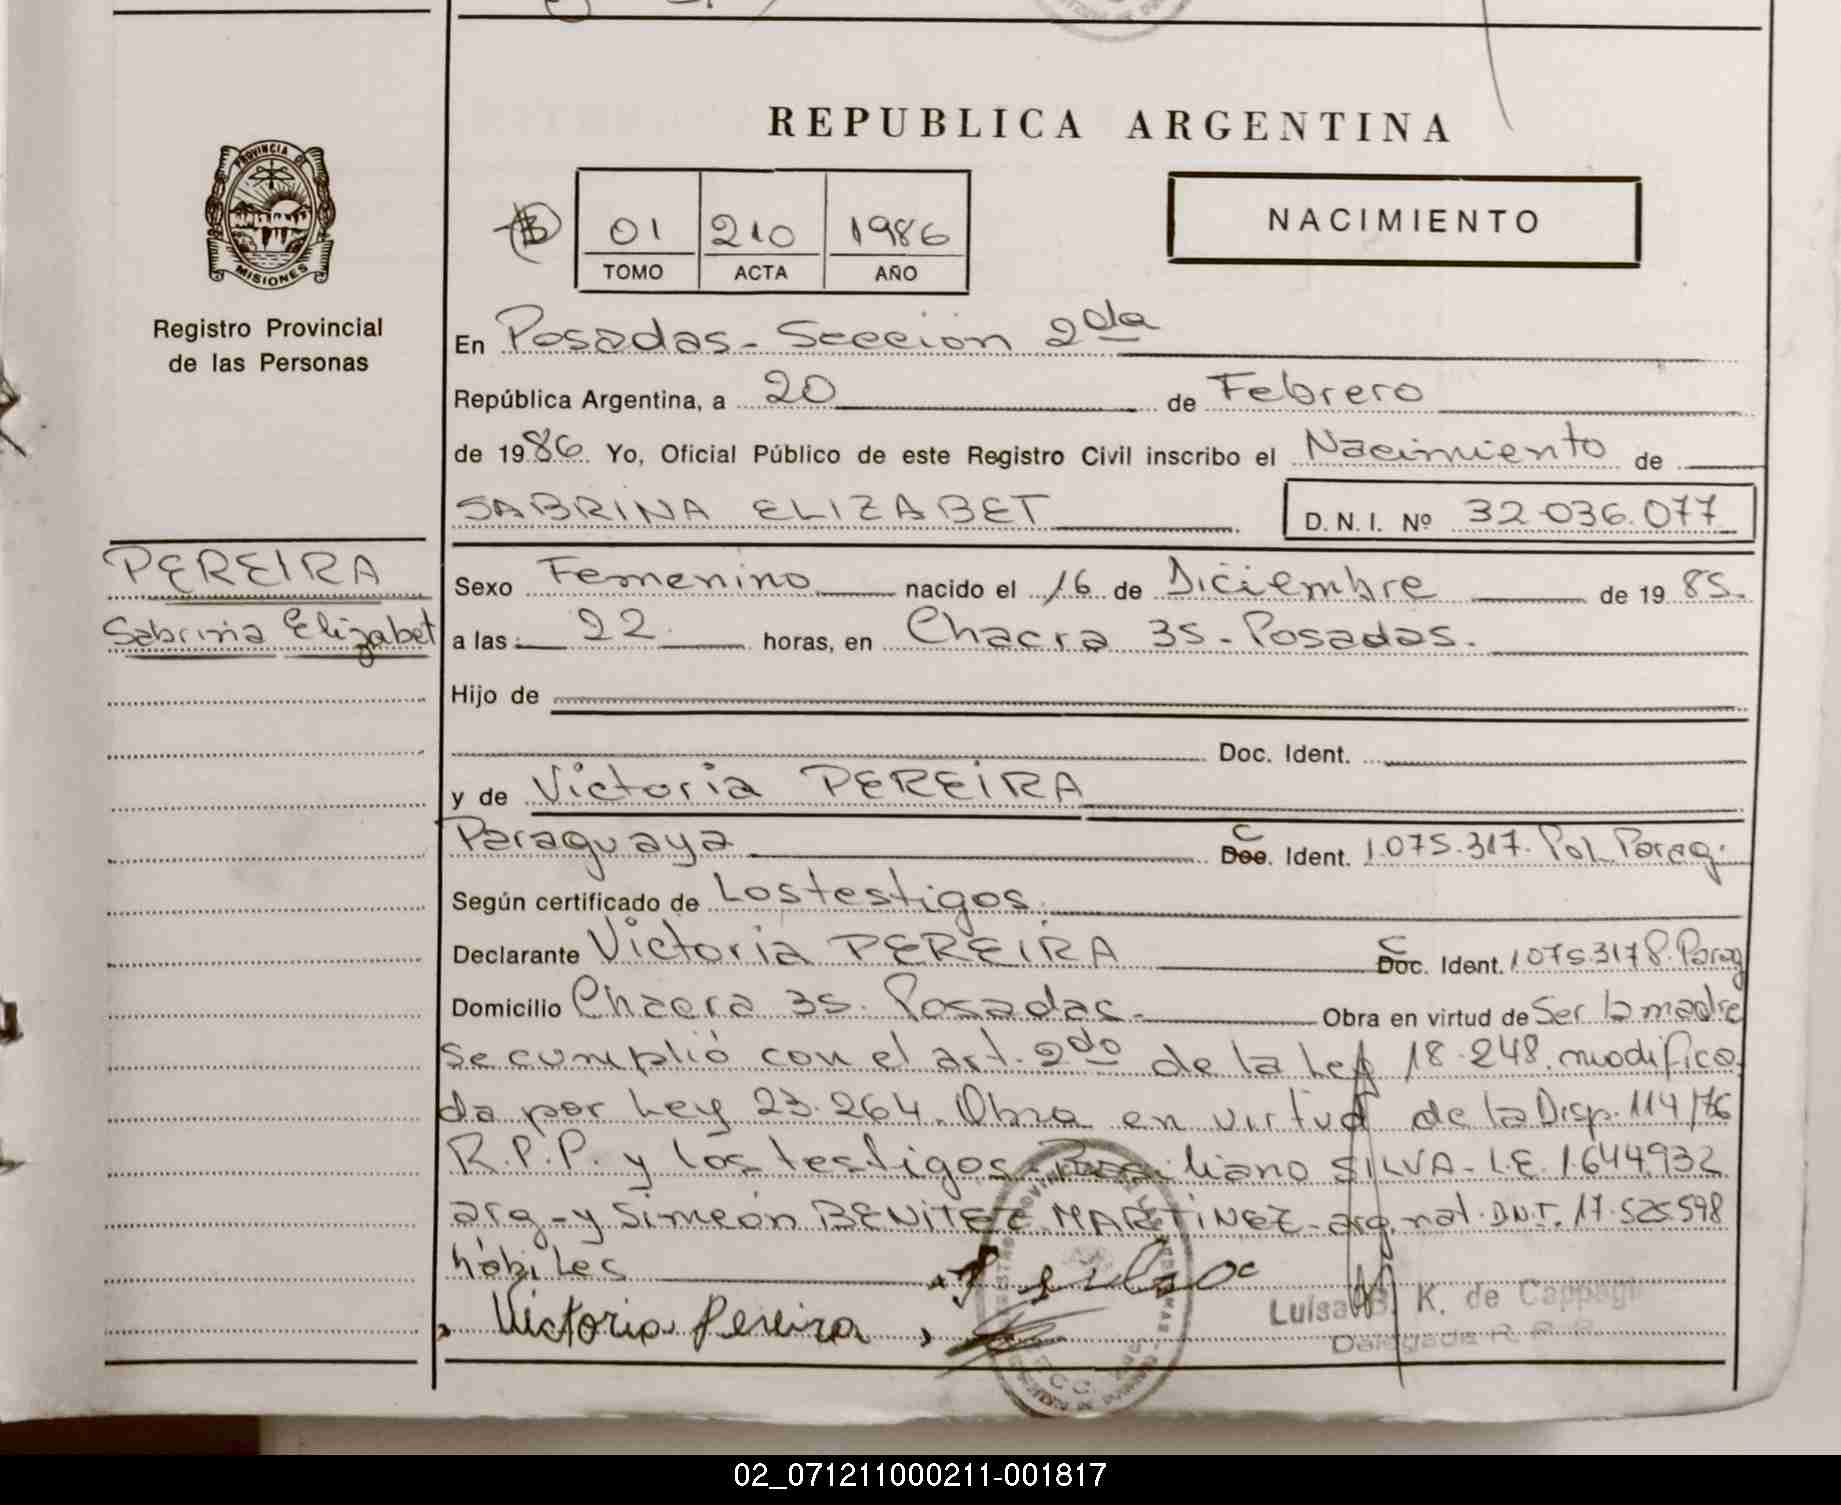 REPUBLICA ARGENTINA
PROVINCIA DE
MISIONES
Registro Provincial
de las Personas
01 210 1986
TOMO ACTA AÑO
NACIMIENTO
En Posadas - Seccion 2da
República Argentina, a 20 de Febrero
de 1986. Yo, Oficial Público de este Registro Civil inscribo el Nacimiento de
SABRINA ELIZABET D. N. I. Nº 32.036.077
PEREIRA
Sabrina Elizabet
Sexo Femenino nacido el 16 de Diciembre de 1985.
a las 22 horas, en Chacra 35 - Posadas.
Hijo de
Doc. Ident.
y de Victoria PEREIRA
Paraguaya C Doc. Ident. 1.075.317. Pol. Parag.
Según certificado de Los testigos.
Declarante Victoria PEREIRA C Doc. Ident. 1075317 P. Parag
Domicilio Chacra 35. Posadas. Obra en virtud de Ser la madre
se cumplió con el art. 2do de la Ley 18.248. modifica
da por Ley 23.264. Obra en virtud de la Disp. 114/76
R.P.P. y los testigos SILVA - L.E. 1.644.932
arg - y Simeón BENITEZ MARTINEZ - arg. nat. D.N.I. 17.525.598
hábiles
Victoria Pereira
Luisa K. de
Delegada R. P. P.
02_071211000211-001817